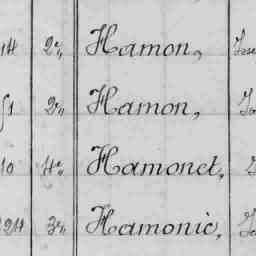 14 2" Hamon,
1 2" Hamon,
10 4" Hamonet,
24 3" Hamonic,